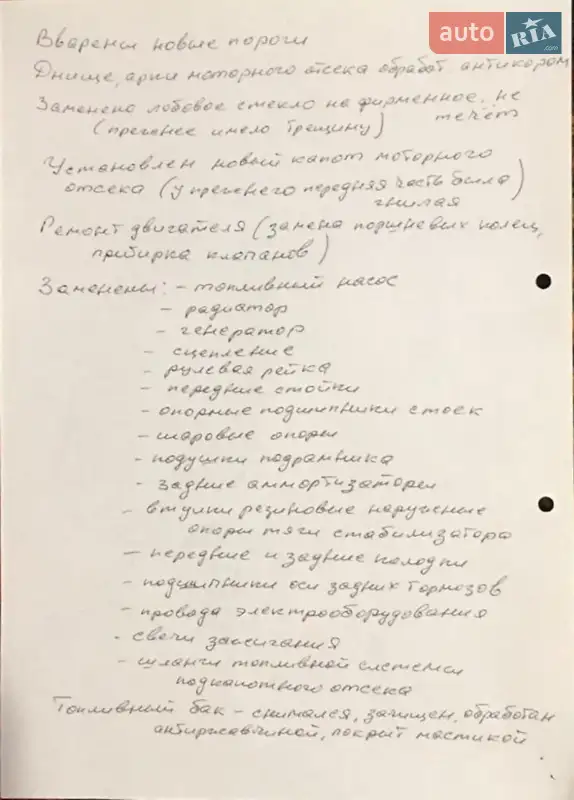 auto RIA .com
Вварены новые пороги
Днище, арки моторного отсека обработ. антикором
Заменено лобовое стекло на фирменное, не течёт
(прежнее имело трещину)
Установлен новый капот моторного
отсека (у прежнего передняя часть была гнилая)
Ремонт двигателя (замена поршневых колец,
прибирка клапанов)
Заменены: - топливный насос
- радиатор
- генератор
- сцепление
- рулевая рейка
- передние стойки
- опорные подшипники стоек
- шаровые опоры
- подушки подрамника
- задние аммортизаторы
- втулки резиновые наружные
опоры тяги стабилизатора
- передние и задние колодки
- подшипники оси задних тормозов
- провода электрооборудования
- свечи зажигания
- шланги топливной системы
подкапотного отсека
Топливный бак - снимался, зачищен, обработан
антиржавчиной, покрыт мастикой